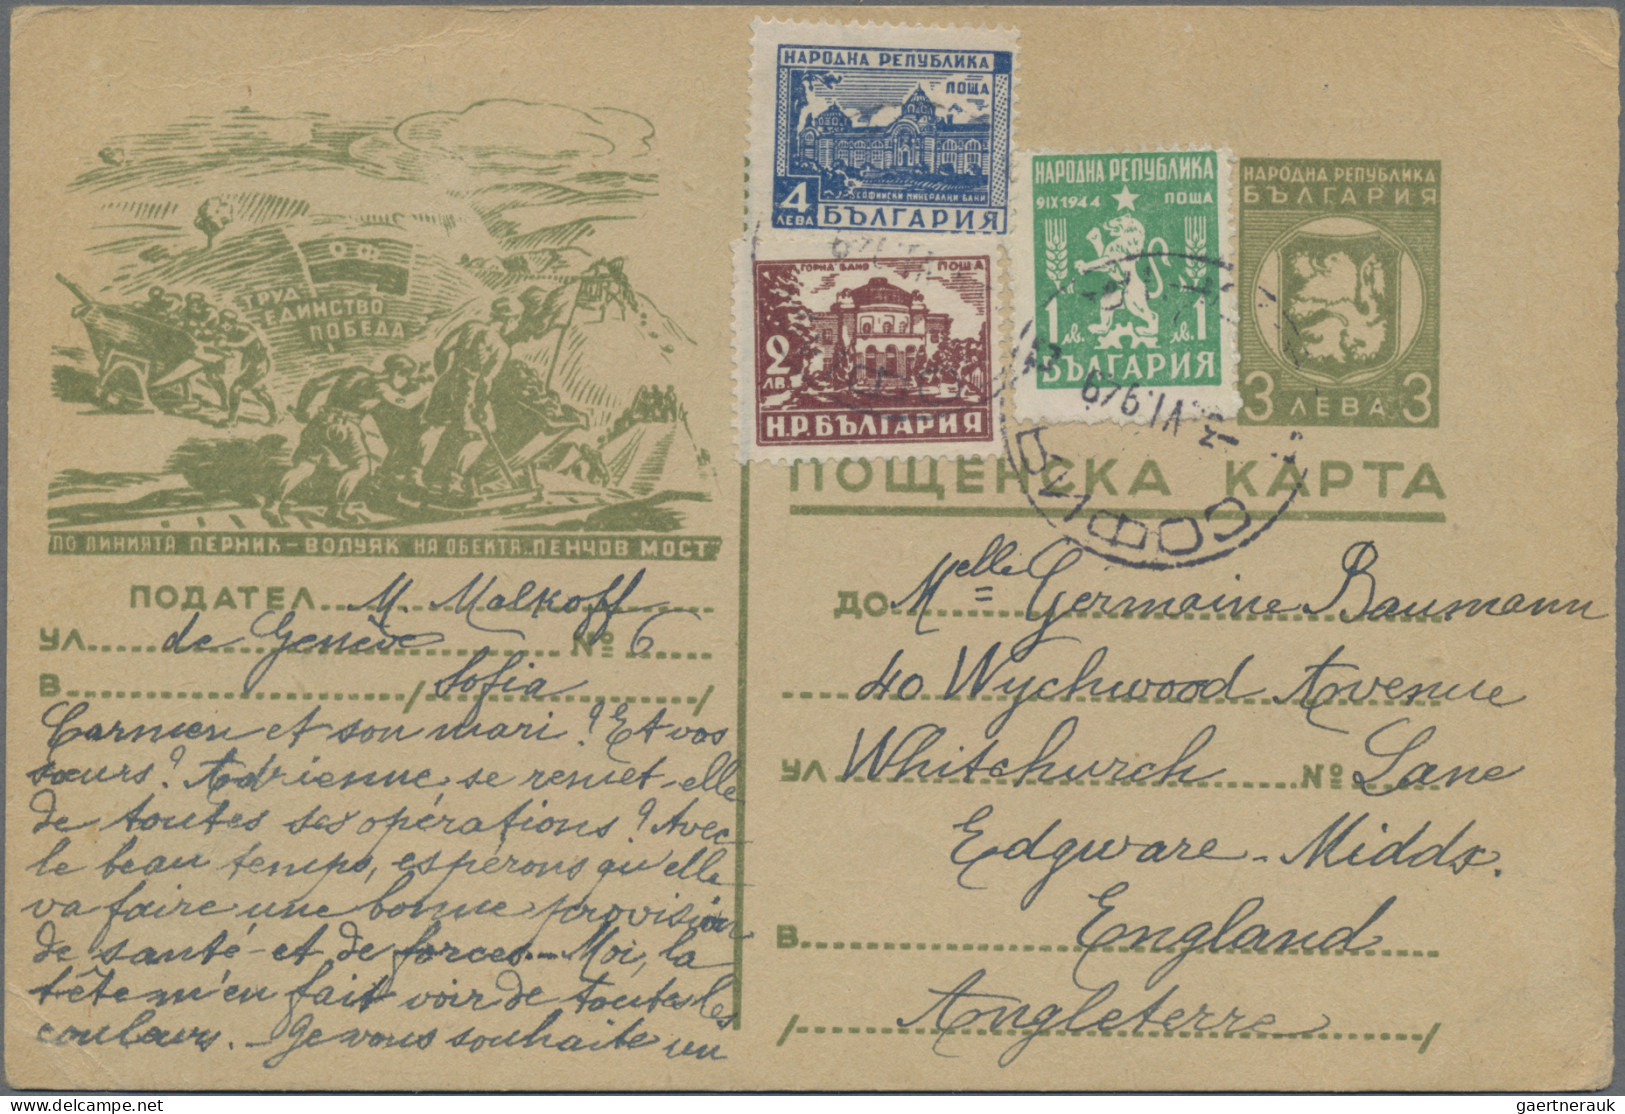 НАРОДНА РЕПУБЛИКА
ПОЩА
СОФИЙСКИ МИНЕРАЛНИ БАНИ
4
ЛЕВА БЪЛГАРИЯ
ГОРНА БАНЯ ПОЩА
2
ЛВ.
Н.Р.БЪЛГАРИЯ
НАРОДНА РЕПУБЛИКА
9IX1944 ПОЩА
1 лв. лв. 1
БЪЛГАРИЯ
НАРОДНА РЕПУБЛИКА
БЪЛГАРИЯ
3 ЛЕВА 3
СОФИЯ
 О Ф
ТРУД
ЕДИНСТВО
ПОБЕДА
ПО ЛИНИЯТА ПЕРНИК – ВОЛУЯК НА ОБЕКТА „ПЕНЧОВ МОСТ"
ПОЩЕНСКА КАРТА
ПОДАТЕЛ M. Malkoff
УЛ. de Genève № 6
В / Sofia /
Carmen et son mari? Et vos
sœurs? Adrienne, se remet-elle
de toutes ses opérations? Avec
le beau temps, espérons qu'elle
va faire une bonne provision
de santé et de forces. — Moi, la
tête m'en fait voir de toutes les
couleurs. — Je vous souhaite un
ДО Melle Germaine Baumann
40 Wychwood Avenue
УЛ Whitchurch № Lane
Edgware - Middx.
В England
/ Angleterre /
gaertnerauk